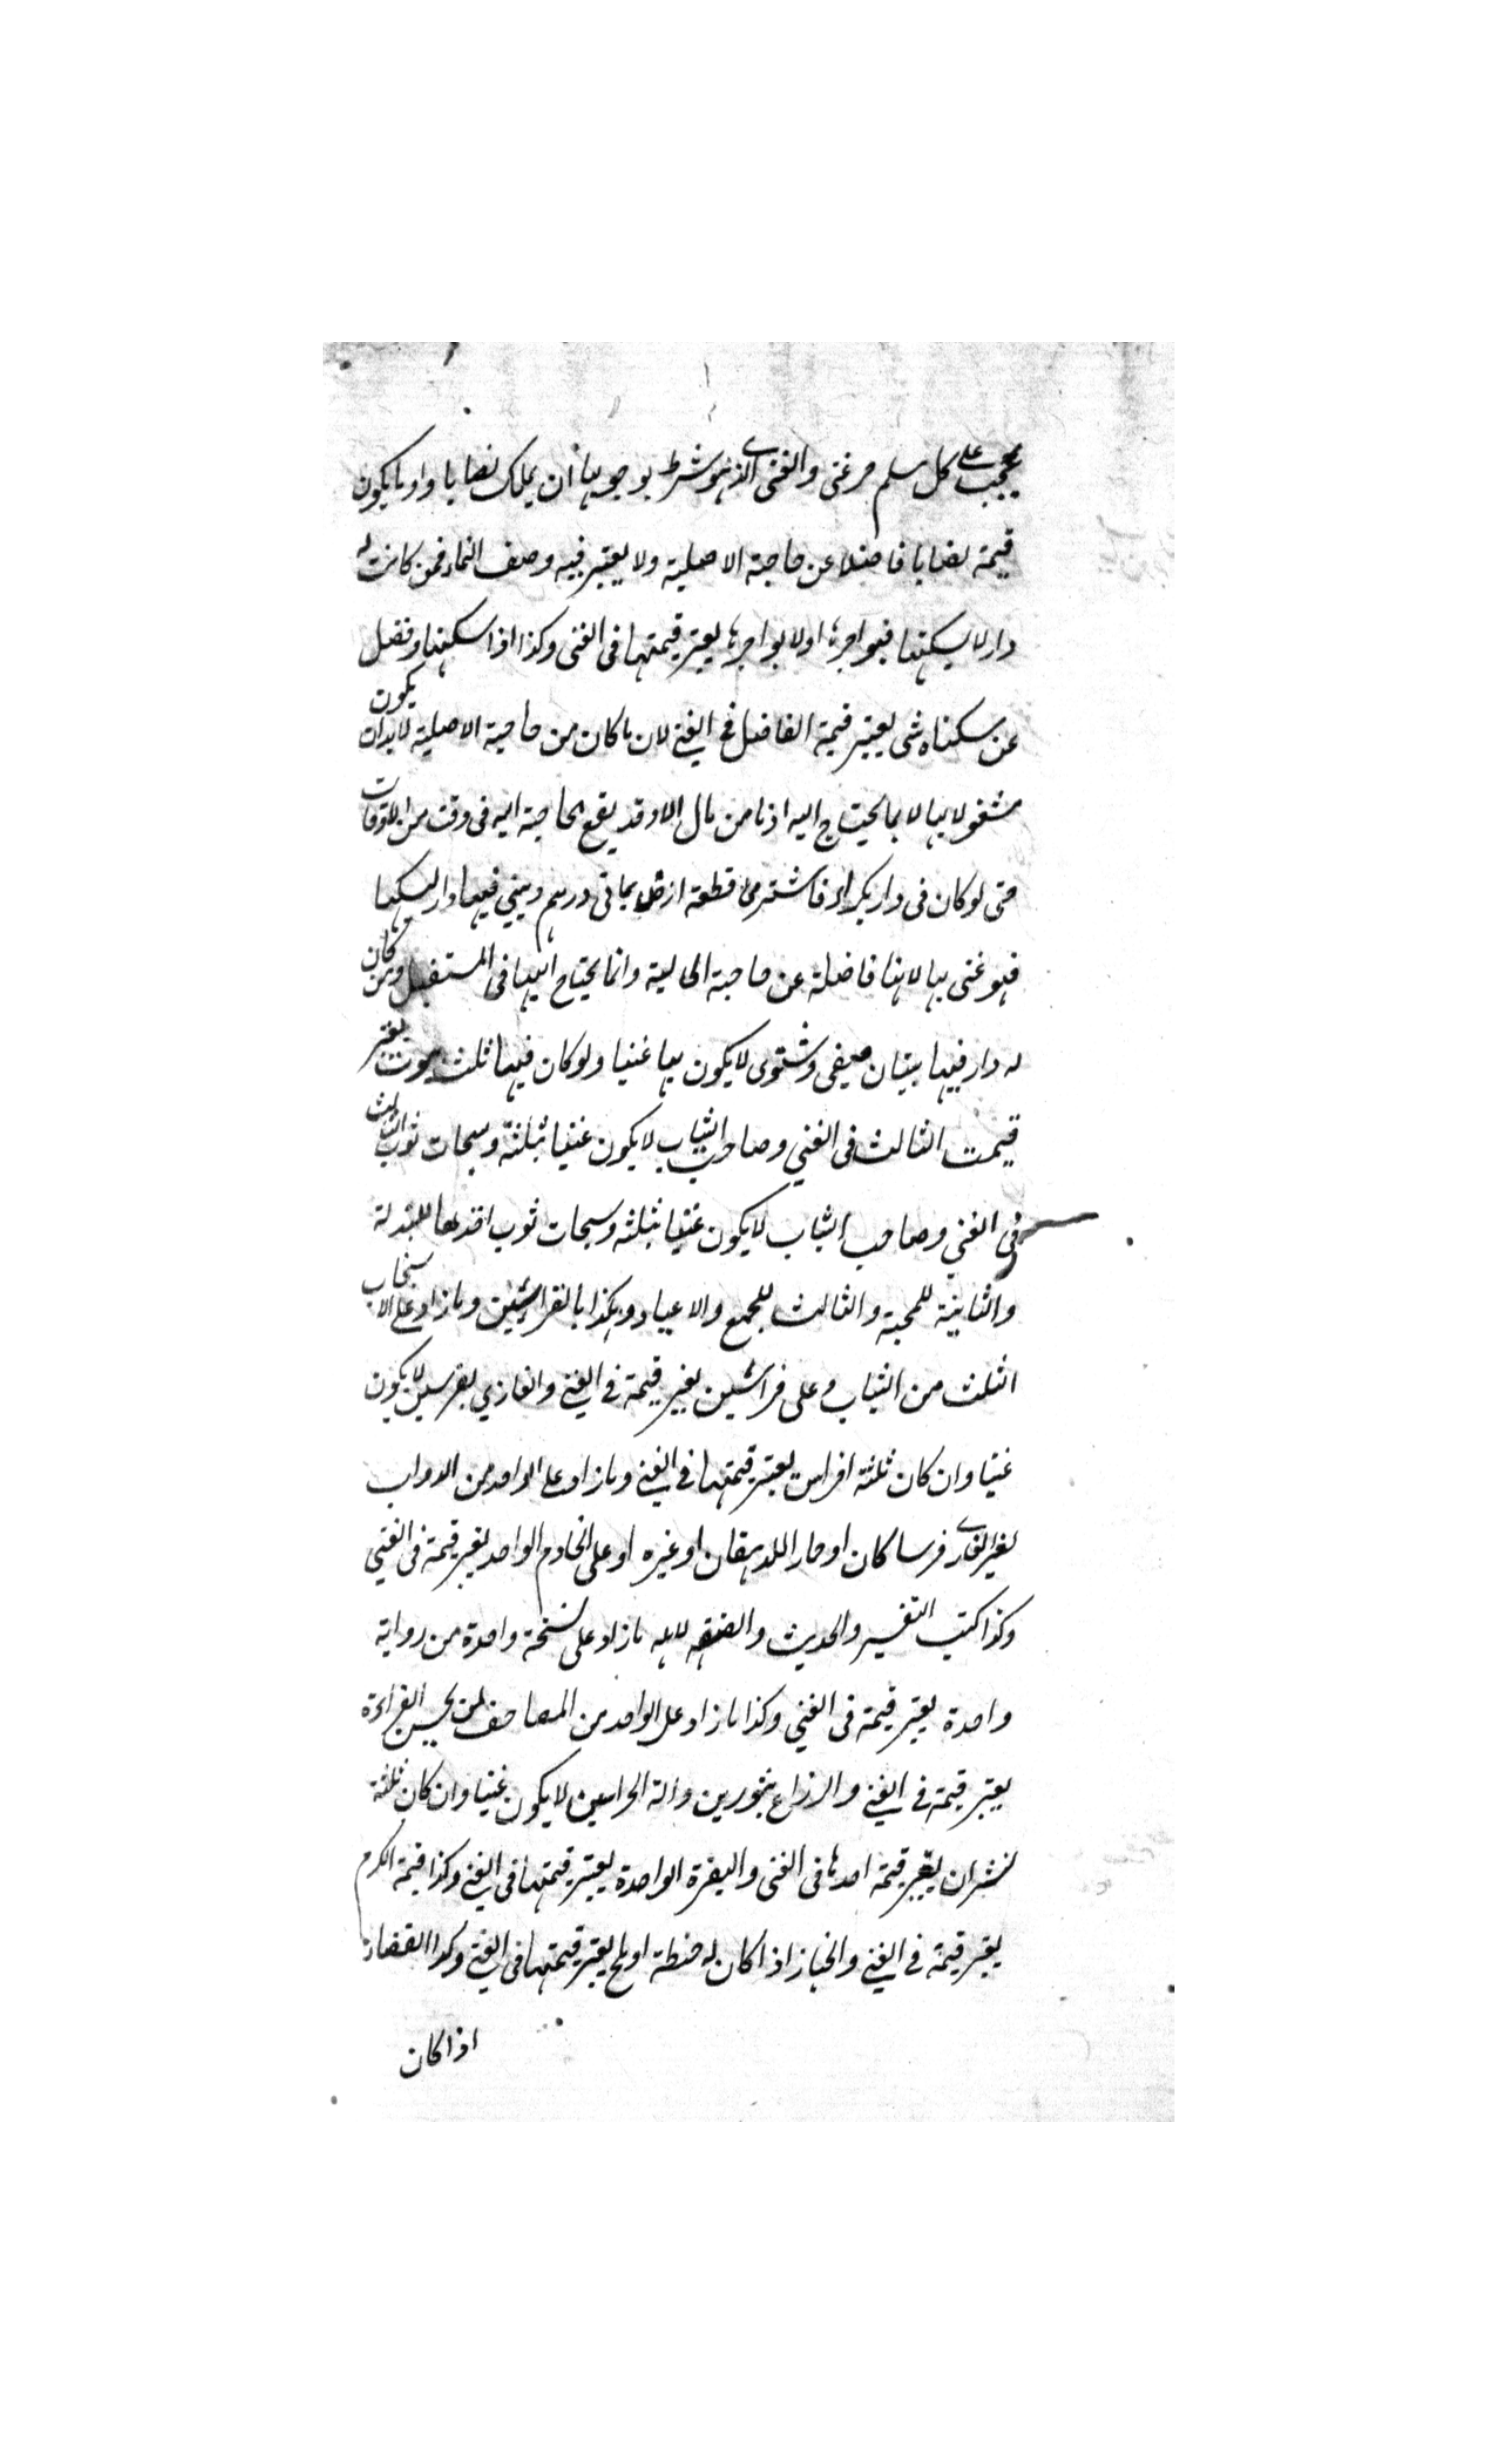 يجب على كل مسلم حر غنى والغنى الذى هو شرط بوجوبها أن يملك نصابا او ما يكون
قيمة نصابا فاضلا عن حاجة الاصلية ولا يعتبر فيه وصف النماء فمن كانت له
دار لا يسكنها فيواجرها اولا يواجرها يعتبر قيمتها فى الغنى وكذا اذا سكنها وفضل
عن سكناه شى يعتبر قيمة الفاضل فى الغنى لان ما كان من حاجية الاصلية لا بد ان يكون
مشغولا بها لا بما يحتاج اليه اذ ما من مال الا وقد يقع الحاجة اليه فى وقت من الاوقات
حتى لو كان فى دار بكراء فاشترى قطعة ارض بماتى درهم ويبني فيها دار ليسكنها
فهو غنى بها لانها فاضلة عن حاجة الحالية وانما يحتاج اليها فى المستقبل ومن كان
له دار فيها بيتان صيفى وشتوى لا يكون بها غنيا ولو كان فيها ثلث بيوت يعتبر
قيمت الثالث فى الغني وصاحب الثياب لا يكون غنيا بثلثة وسجات ثوب الثالث
فى الغني وصاحب الثياب لا يكون غنيا بثلثه وسجات ثوب احدها للبذلة
والثانية للمحبة والثالث للجمع والاعياد وهكذا بالفراشين وما زاد على الا
الثلث من الثياب وعلى فراشين يعتبر قيمة فى الغنى والغازي بفرسين لا يكون
غنيا وان كان ثلثة افراس يعتبر قيمتها فى الغنى وما زاد على الواحد من الدواب
لغير الغازى فرسا كان او حمارا للدهقان او غيره او على الخادم الواحد يعتبر قيمة فى الغني
وكذا كتب التفسير والحديث والفقه لاهله ما زاد على نسخة واحدة من رواية
واحدة يعتبر قيمة فى الغني وكذا ما زاد على الواحد من المصاحف لمن يحسن القراءة
يعتبر قيمة فى الغنى والزراع بثورين والة الحراسين لا يكون غنيا وان كان ثلثة
لنشران يعتبر قيمة احدها فى الغنى والبقرة الواحدة يعتبر قيمتها فى الغنى وكذا قيمة الكرم
يعتبر قيمة فى الغنى والخباز اذا كان له حنطة او ملح يعتبر قيمتها فى الغنى وكذا القصار
اذا كان